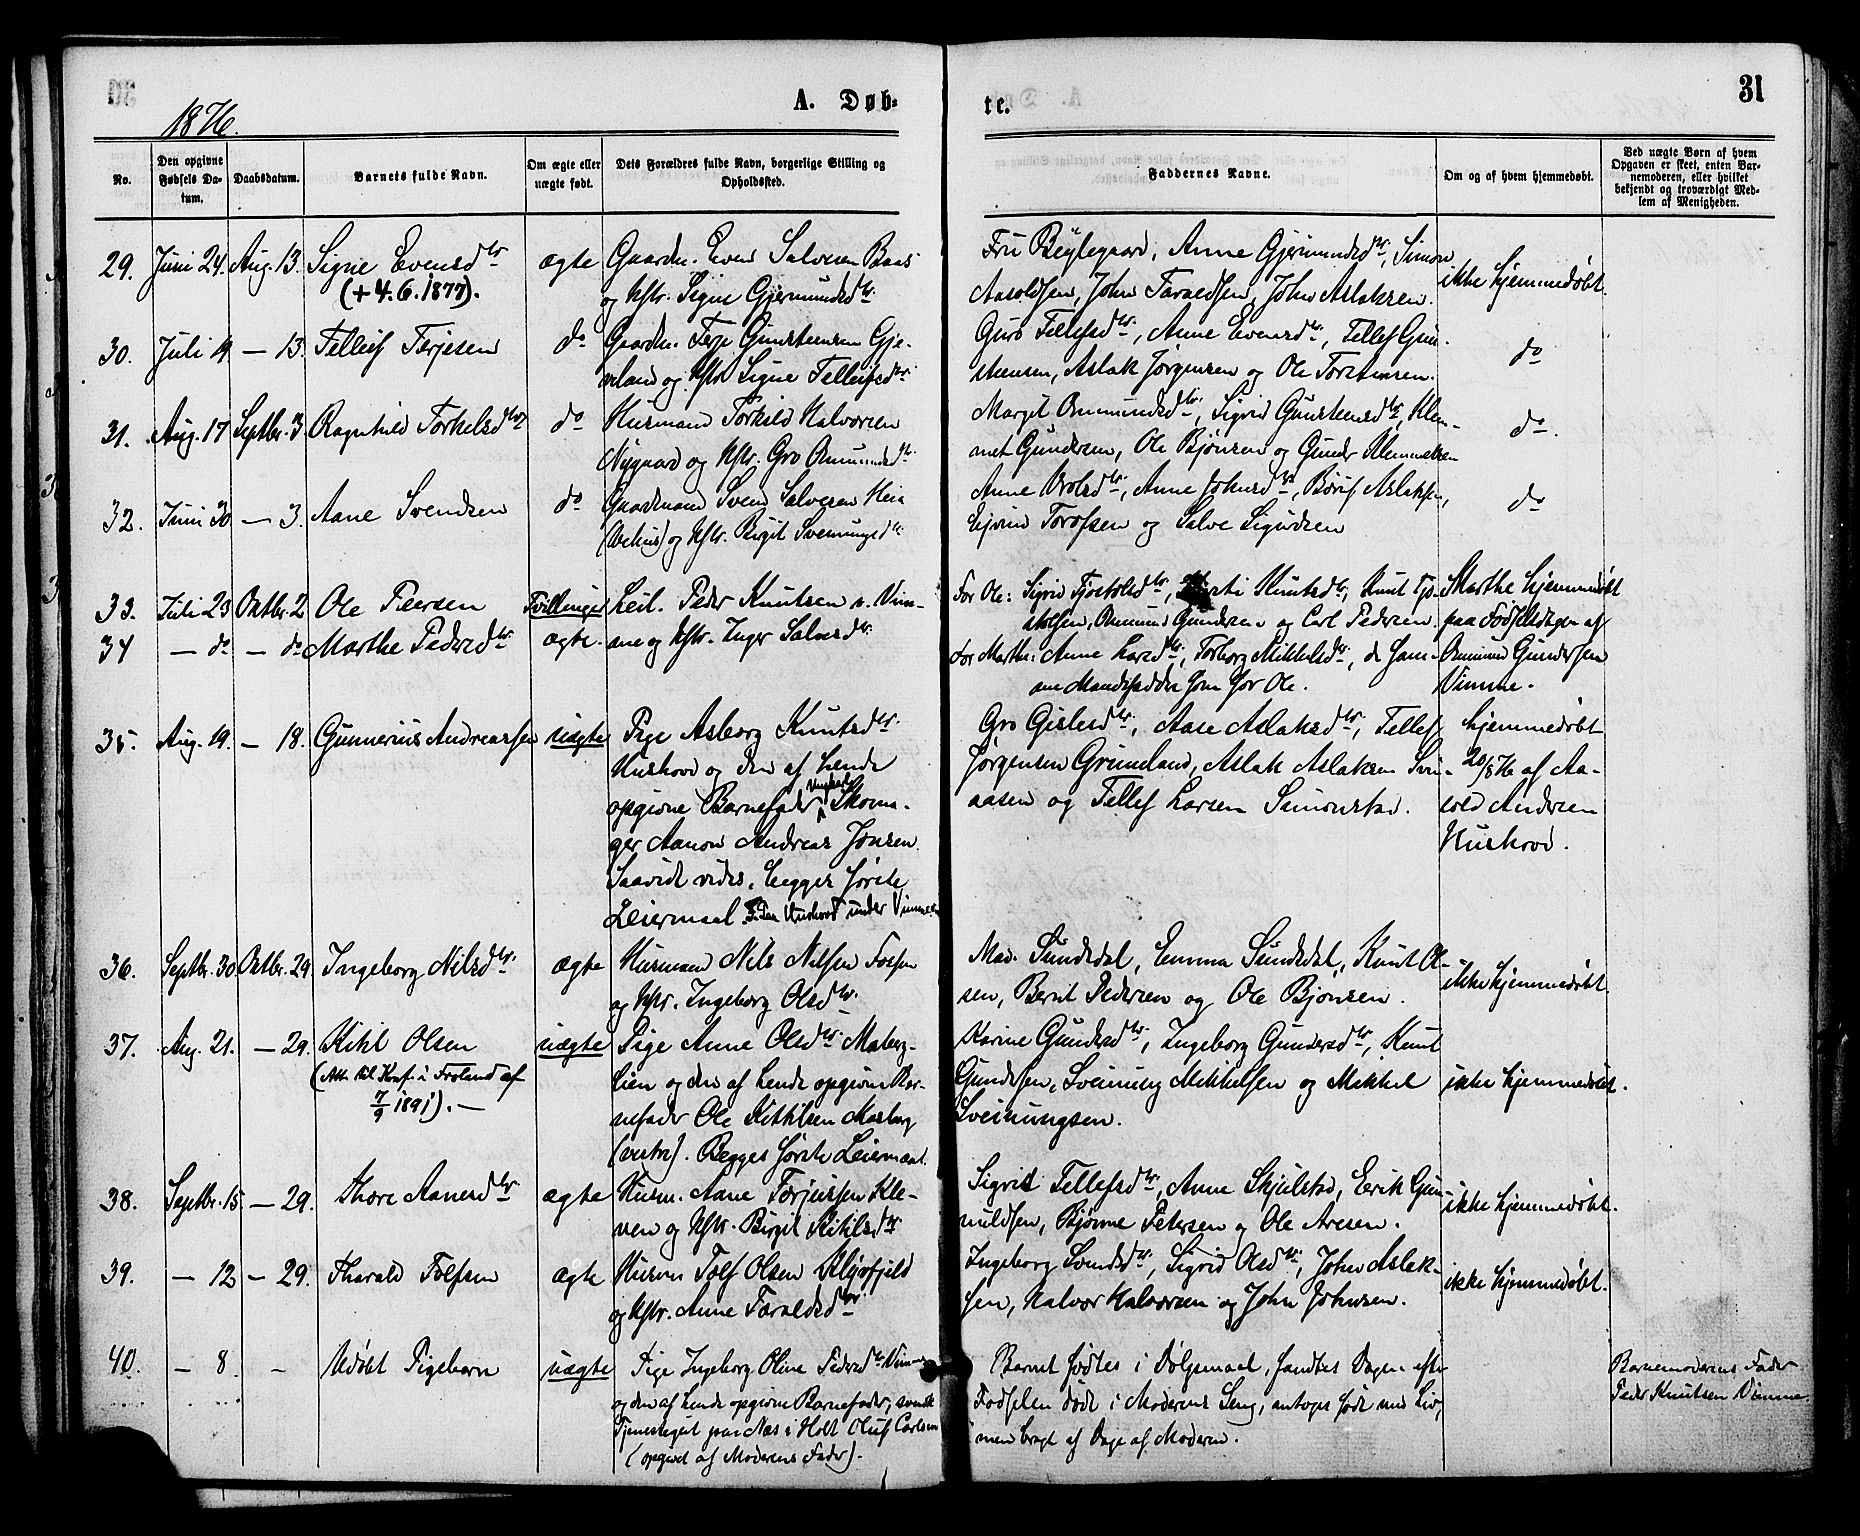 1876.
A. Døb-
te.
31
No.
Den opgivne Fødsels Datum.
Daabsdatum.
Barnets fulde Navn.
Om ægte eller uægte født.
Dets Forældres fulde Navn, borgerlige Stilling og Opholdssted.
Faddernes Navne.
Om og af hvem hjemmedøbt.
Ved uægte Børn af hvem Opgaven er skeet, enten Barnemoderen, eller hvilket bekjendt og troværdigt Medlem af Menigheden.
29. Juni 24. Aug. 13. Signe Evensdtr ægte Gaardm. Even Salvesen Baas
(+ 4.6.1877). og Hstr. Signe Gjermundsdtr.
Fru Beylegaard, Anne Gjermundsdtr, Simon
Aasoldsen, John Taraldsen, John Aslaksen.
ikke hjemmedøbt.
30. Juli 9. — 13. Tellef Terjesen do Gaardm. Terje Gunsteensen Gje-
veland og Hstr. Signe Tellefsdtr
Guro Tellefsdtr, Anne Evensdtr, Tellef Gun-
steensen, Aslak Jørgensen og Ole Torstensen.
do
31. Aug. 17 Septbr. 3. Ragnhild Torkelsdtr do Husmand Torkild Halvorsen
Nygaard og Hstr. Gro Omundsdtr.
Margit Omundsdtr, Sigrid Gunsteensdtr, Klem-
met Gundersen, Ole Bjønsen og Gunder Klemmetsen
do.
32. Juni 30 — 3. Aane Svendsen do Gaardmand Svend Salvesen Heia
og Hstr. Birgit Sveinungsdtr
Anne Olsdtr, Anne Johnsdtr, Børuf Aslaksen,
Eivind Torofsen og Salve Sigurdsen
do
33. Juli 23 Oktbr. 2 Ole Peersen Tvillinger Leil. Peder Knutsen v. Vim-
34 — do — do Marthe Pedersdtr. ægte. me og Hstr. Inger Salvesdtr.
For Ole: Sigrid Tjostolsdtr, Kirsti Knutsdtr, Knut Tjo-
stolsen, Omund Gundersen og Carl Pedersen.
For Marthe: Anne Larsdtr, Torborg Mikkelsdtr, de sam-
me Mandsfaddere som for Ole.
Marthe hjemmedøbt
paa Fødselsdagen af
Omund Gundersen
Vimme.
35. Aug. 19. — 18. Gunnerius Andreassen uægte Pige Asborg Knutsdtr.
Huskovd og den af hende
opgivne Barnefader Ungkarl Skoma-
ger Aanon Andreas Jonsen.
Saavidt vides, begges første
Leiermaal. Huskovd under Vimme
Gro Gislesdtr, Aase Aslaksdtr, Tellef
Jørgensen Grimeland, Aslak Aslaksen Svin-
aasen og Tellef Larsen Simonstad.
hjemmedøbt
20/8 76 af Aa-
sold Andersen
Huskovd.
36. Septbr. 30 Oktbr. 29. Ingeborg Nilsdtr. ægte Husmand Nils Nilsen Fossen
og Hstr. Ingeborg Olsdtr.
Mad. Sundsdal, Emma Sundsdal, Knut Ol-
sen, Berut Pedersen og Ole Bjønsen.
ikke hjemmedøbt.
37. Aug. 21. — 29. Kitil Olsen uægte Pige Anne Olsdtr Moberg-
(Att. til Konf. i Froland af
7/9 1891). —
lien og den af hende opgivne Bar-
nefader Ole Kittilsen Mosberg
(vestre). Begges første Leiermaal.
Karine Gundersdtr, Ingeborg Gundersdtr, Knut
Gundersen, Sveinung Mikkelsen og Mikkel
Sveinungsen.
ikke hjemmedøbt.
38. Septbr. 15. — 29. Thore Aanesdtr ægte Husm. Aane Torjussen Kle-
ven og Hstr. Birgit Kitilsdtr
Sigrid Tellefsdtr, Anne Skjulstad, Erik Gun-
nuldsen, Bjønne Petersen og Ole Aresen.
ikke hjemmedøbt.
39. — 12 — 29. Tharald Tolfsen ægte Husm. Tolf Olsen Klyvfjeld
og Hstr. Anne Taraldsdtr
Ingeborg Svendsdtr, Sigrid Olsdtr, John Aslak-
sen, Halvor Halvorsen og John Johnsen.
ikke hjemmedøbt.
40. — 8. — Udøbt Pigebarn uægte Pige Ingeborg Oline Pedersdtr Vimme
og den af hende opgivne Barnefader, svensk
Tjenestegut paa Næs i Holt Oluf Carlsen
(opgivet af Moderens Fader).
Barnet fødtes i Dølgsmaal, fandtes Dagen efter
Fødselen dødt i Moderens Seng, antages født med Liv,
men bragt af Dage af Moderen.
Barnemoderens Fader
Peder Knutsen Vimme